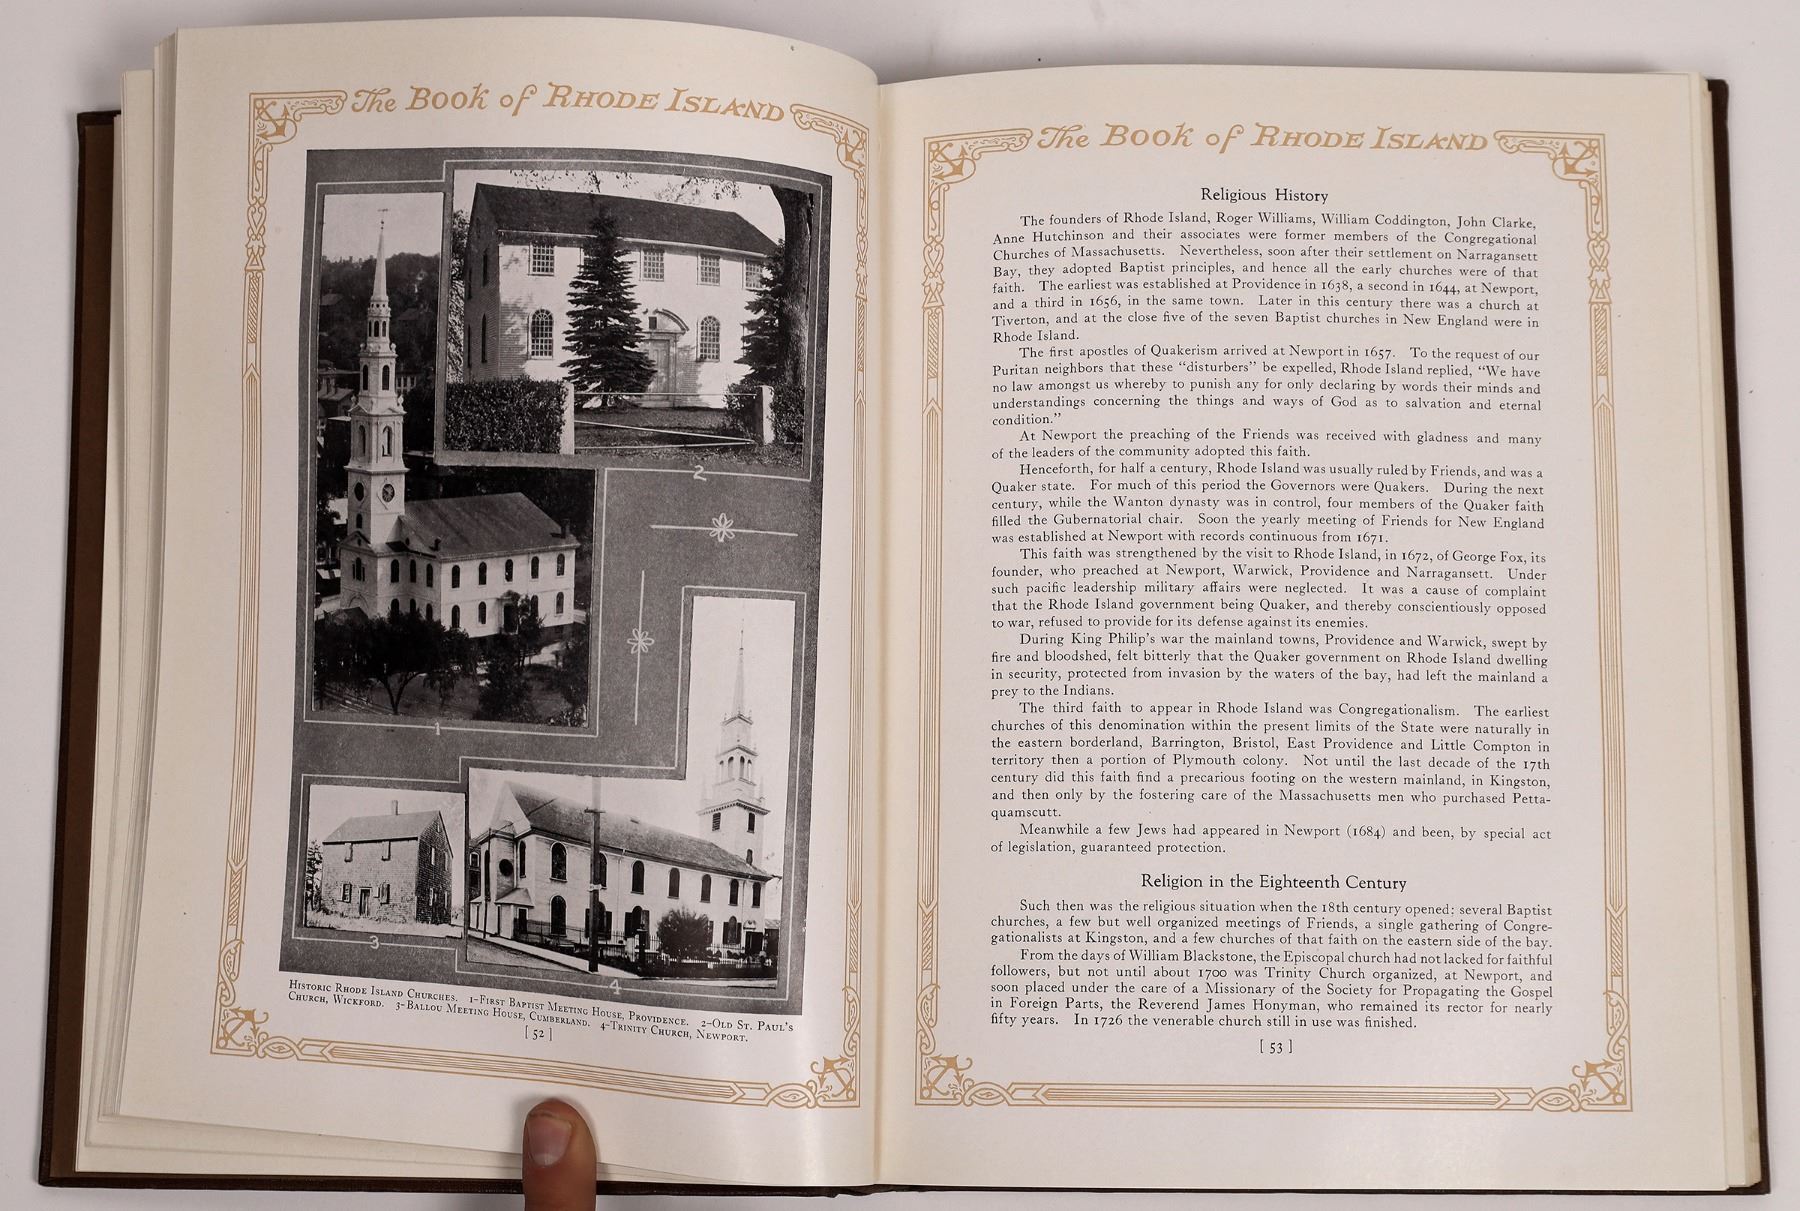 The Book of Rhode Island
2
1
3
4
Historic Rhode Island Churches. 1-First Baptist Meeting House, Providence. 2-Old St. Paul's
Church, Wickford. 3-Ballou Meeting House, Cumberland. 4-Trinity Church, Newport.
[ 52 ]
The Book of Rhode Island
Religious History
The founders of Rhode Island, Roger Williams, William Coddington, John Clarke,
Anne Hutchinson and their associates were former members of the Congregational
Churches of Massachusetts. Nevertheless, soon after their settlement on Narragansett
Bay, they adopted Baptist principles, and hence all the early churches were of that
faith. The earliest was established at Providence in 1638, a second in 1644, at Newport,
and a third in 1656, in the same town. Later in this century there was a church at
Tiverton, and at the close five of the seven Baptist churches in New England were in
Rhode Island.
The first apostles of Quakerism arrived at Newport in 1657. To the request of our
Puritan neighbors that these "disturbers" be expelled, Rhode Island replied, "We have
no law amongst us whereby to punish any for only declaring by words their minds and
understandings concerning the things and ways of God as to salvation and eternal
condition."
At Newport the preaching of the Friends was received with gladness and many
of the leaders of the community adopted this faith.
Henceforth, for half a century, Rhode Island was usually ruled by Friends, and was a
Quaker state. For much of this period the Governors were Quakers. During the next
century, while the Wanton dynasty was in control, four members of the Quaker faith
filled the Gubernatorial chair. Soon the yearly meeting of Friends for New England
was established at Newport with records continuous from 1671.
This faith was strengthened by the visit to Rhode Island, in 1672, of George Fox, its
founder, who preached at Newport, Warwick, Providence and Narragansett. Under
such pacific leadership military affairs were neglected. It was a cause of complaint
that the Rhode Island government being Quaker, and thereby conscientiously opposed
to war, refused to provide for its defense against its enemies.
During King Philip's war the mainland towns, Providence and Warwick, swept by
fire and bloodshed, felt bitterly that the Quaker government on Rhode Island dwelling
in security, protected from invasion by the waters of the bay, had left the mainland a
prey to the Indians.
The third faith to appear in Rhode Island was Congregationalism. The earliest
churches of this denomination within the present limits of the State were naturally in
the eastern borderland, Barrington, Bristol, East Providence and Little Compton in
territory then a portion of Plymouth colony. Not until the last decade of the 17th
century did this faith find a precarious footing on the western mainland, in Kingston,
and then only by the fostering care of the Massachusetts men who purchased Petta-
quamscutt.
Meanwhile a few Jews had appeared in Newport (1684) and been, by special act
of legislation, guaranteed protection.
Religion in the Eighteenth Century
Such then was the religious situation when the 18th century opened: several Baptist
churches, a few but well organized meetings of Friends, a single gathering of Congre-
gationalists at Kingston, and a few churches of that faith on the eastern side of the bay.
From the days of William Blackstone, the Episcopal church had not lacked for faithful
followers, but not until about 1700 was Trinity Church organized, at Newport, and
soon placed under the care of a Missionary of the Society for Propagating the Gospel
in Foreign Parts, the Reverend James Honyman, who remained its rector for nearly
fifty years. In 1726 the venerable church still in use was finished.
[ 53 ]